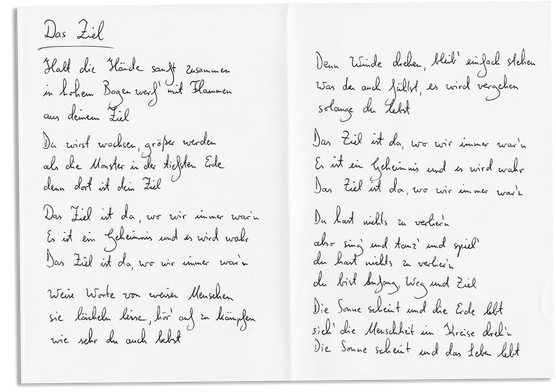 Das Ziel
Halt die Hände sanft zusammen
in hohem Bogen werf' mit Flammen
aus deinem Ziel
Du wirst wachsen, größer werden
als die Monster in der tiefsten Erde
denn dort ist dein Ziel
Das Ziel ist da, wo wir immer war'n
Es ist ein Geheimnis und es wird wahr
Das Ziel ist da, wo wir immer war'n
Weise Worte von weisen Menschen
sie lächeln leise, hör' auf zu kämpfen
wie sehr du auch lebst
Denn Winde drehen, bleib' einfach stehen
Was du auch fühlst, es wird vergehen
solange du lebst
Das Ziel ist da, wo wir immer war'n
Es ist ein Geheimnis und es wird wahr
Das Ziel ist da, wo wir immer war'n
Du hast nichts zu verlier'n
also sing' und tanz' und spiel'
du hast nichts zu verlier'n
du bist Anfang, Weg und Ziel
Die Sonne scheint und die Erde lebt
sieh' die Menschheit im Kreise dreh'n
Die Sonne scheint und das Leben lebt